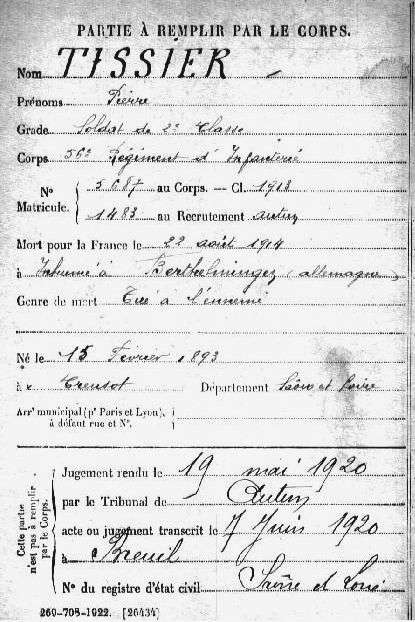 PARTIE À REMPLIR PAR LE CORPS.
Nom TISSIER
Prénoms Pierre
Grade Soldat de 2e Classe
Corps 56e Régiment d'Infanterie
No Matricule. 5687 au Corps. — Cl. 1913
1483 au Recrutement Autun
Mort pour la France le 22 août 1914
à Inhumé à Berthelmingen (allemagne)
Genre de mort Tué à l'ennemi
Né le 15 Février 1893
à Creusot Département Saône et Loire
Arrt municipal (pr Paris et Lyon), à défaut rue et No.
Cette partie n'est pas à remplir par le Corps.
Jugement rendu le 19 mai 1920
par le Tribunal de Autun
acte ou jugement transcrit le 7 Juin 1920
à Breuil
No du registre d'état civil Saône et Loire
269-708-1922. [26434]